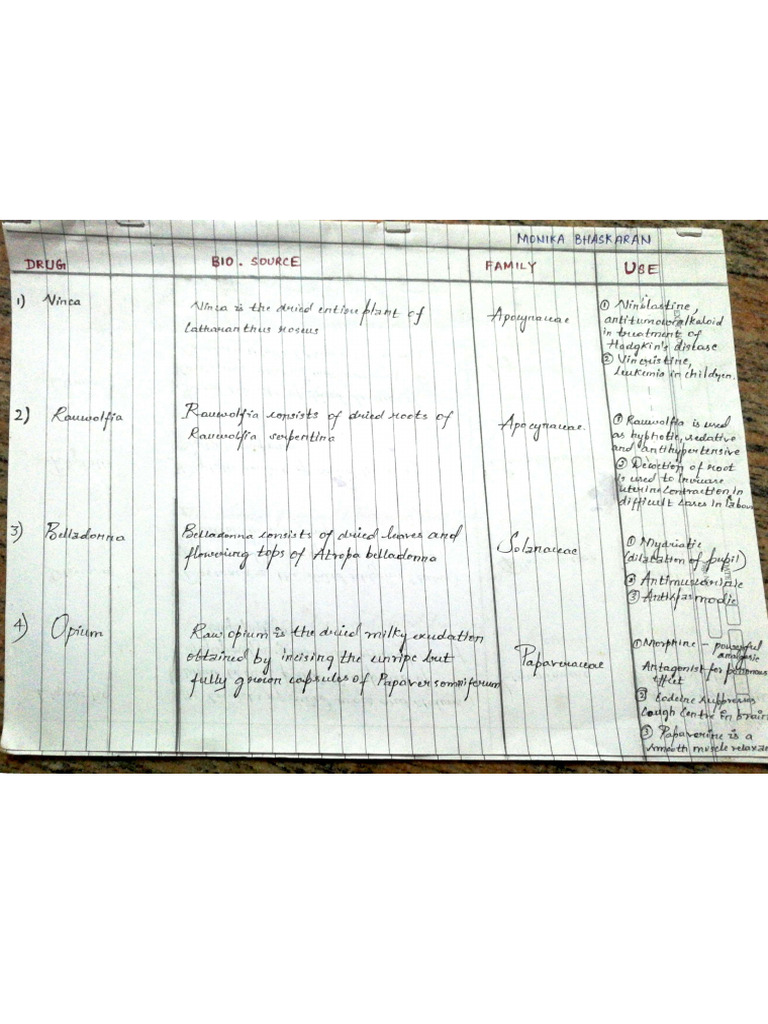 MONIKA BHASKARAN
DRUG BIO. SOURCE FAMILY USE
1) Vinca
Vinca is the dried entire plant of
Catharanthus roseus
Apocynaceae
① Vinblastine,
antitumour alkaloid
in treatment of
Hodgkin's disease
② Vincristine,
Leukemia in children.
2) Rauwolfia
Rauwolfia consists of dried roots of
Rauwolfia serpentina
Apocynaceae.
① Rauwolfia is used
as hyphotic, sedative
and antihypertensive
② Decoction of root
is used to increase
uterine contraction in
difficult cases in labour
3) Belladonna
Belladonna consists of dried leaves and
flowering tops of Atropa belladonna
Solanaceae
① Mydriatic
(dilatation of pupil)
② Antimuscarinic
③ Antispasmodic
4) Opium
Raw opium is the dried milky exudation
obtained by incising the unripe but
fully grown capsules of Papaver somniferum
Papaveraceae
① Morphine - powerful
analgesic
Antagonist for poisonous
effect
② Codeine suppresses
cough centre in brain
③ Papaverine is a
smooth muscle relaxan